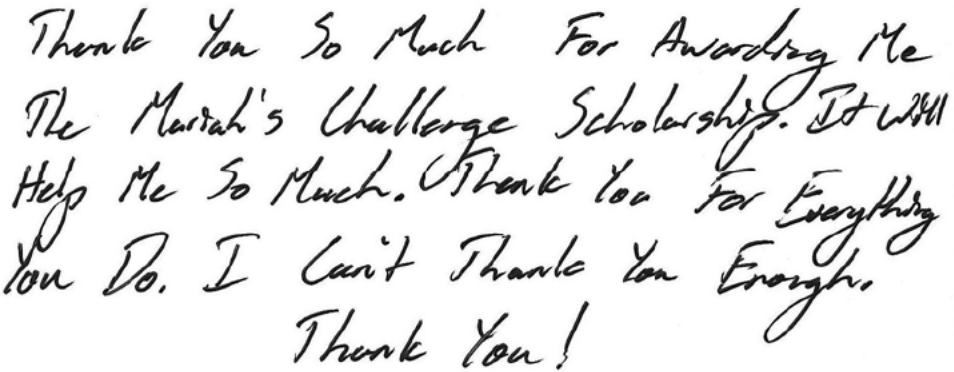 Thank You So Much For Awarding Me
The Mariah's Challenge Scholarship. It Will
Help Me So Much. Thank You For Everything
You Do. I Can't Thank You Enough.
Thank You!